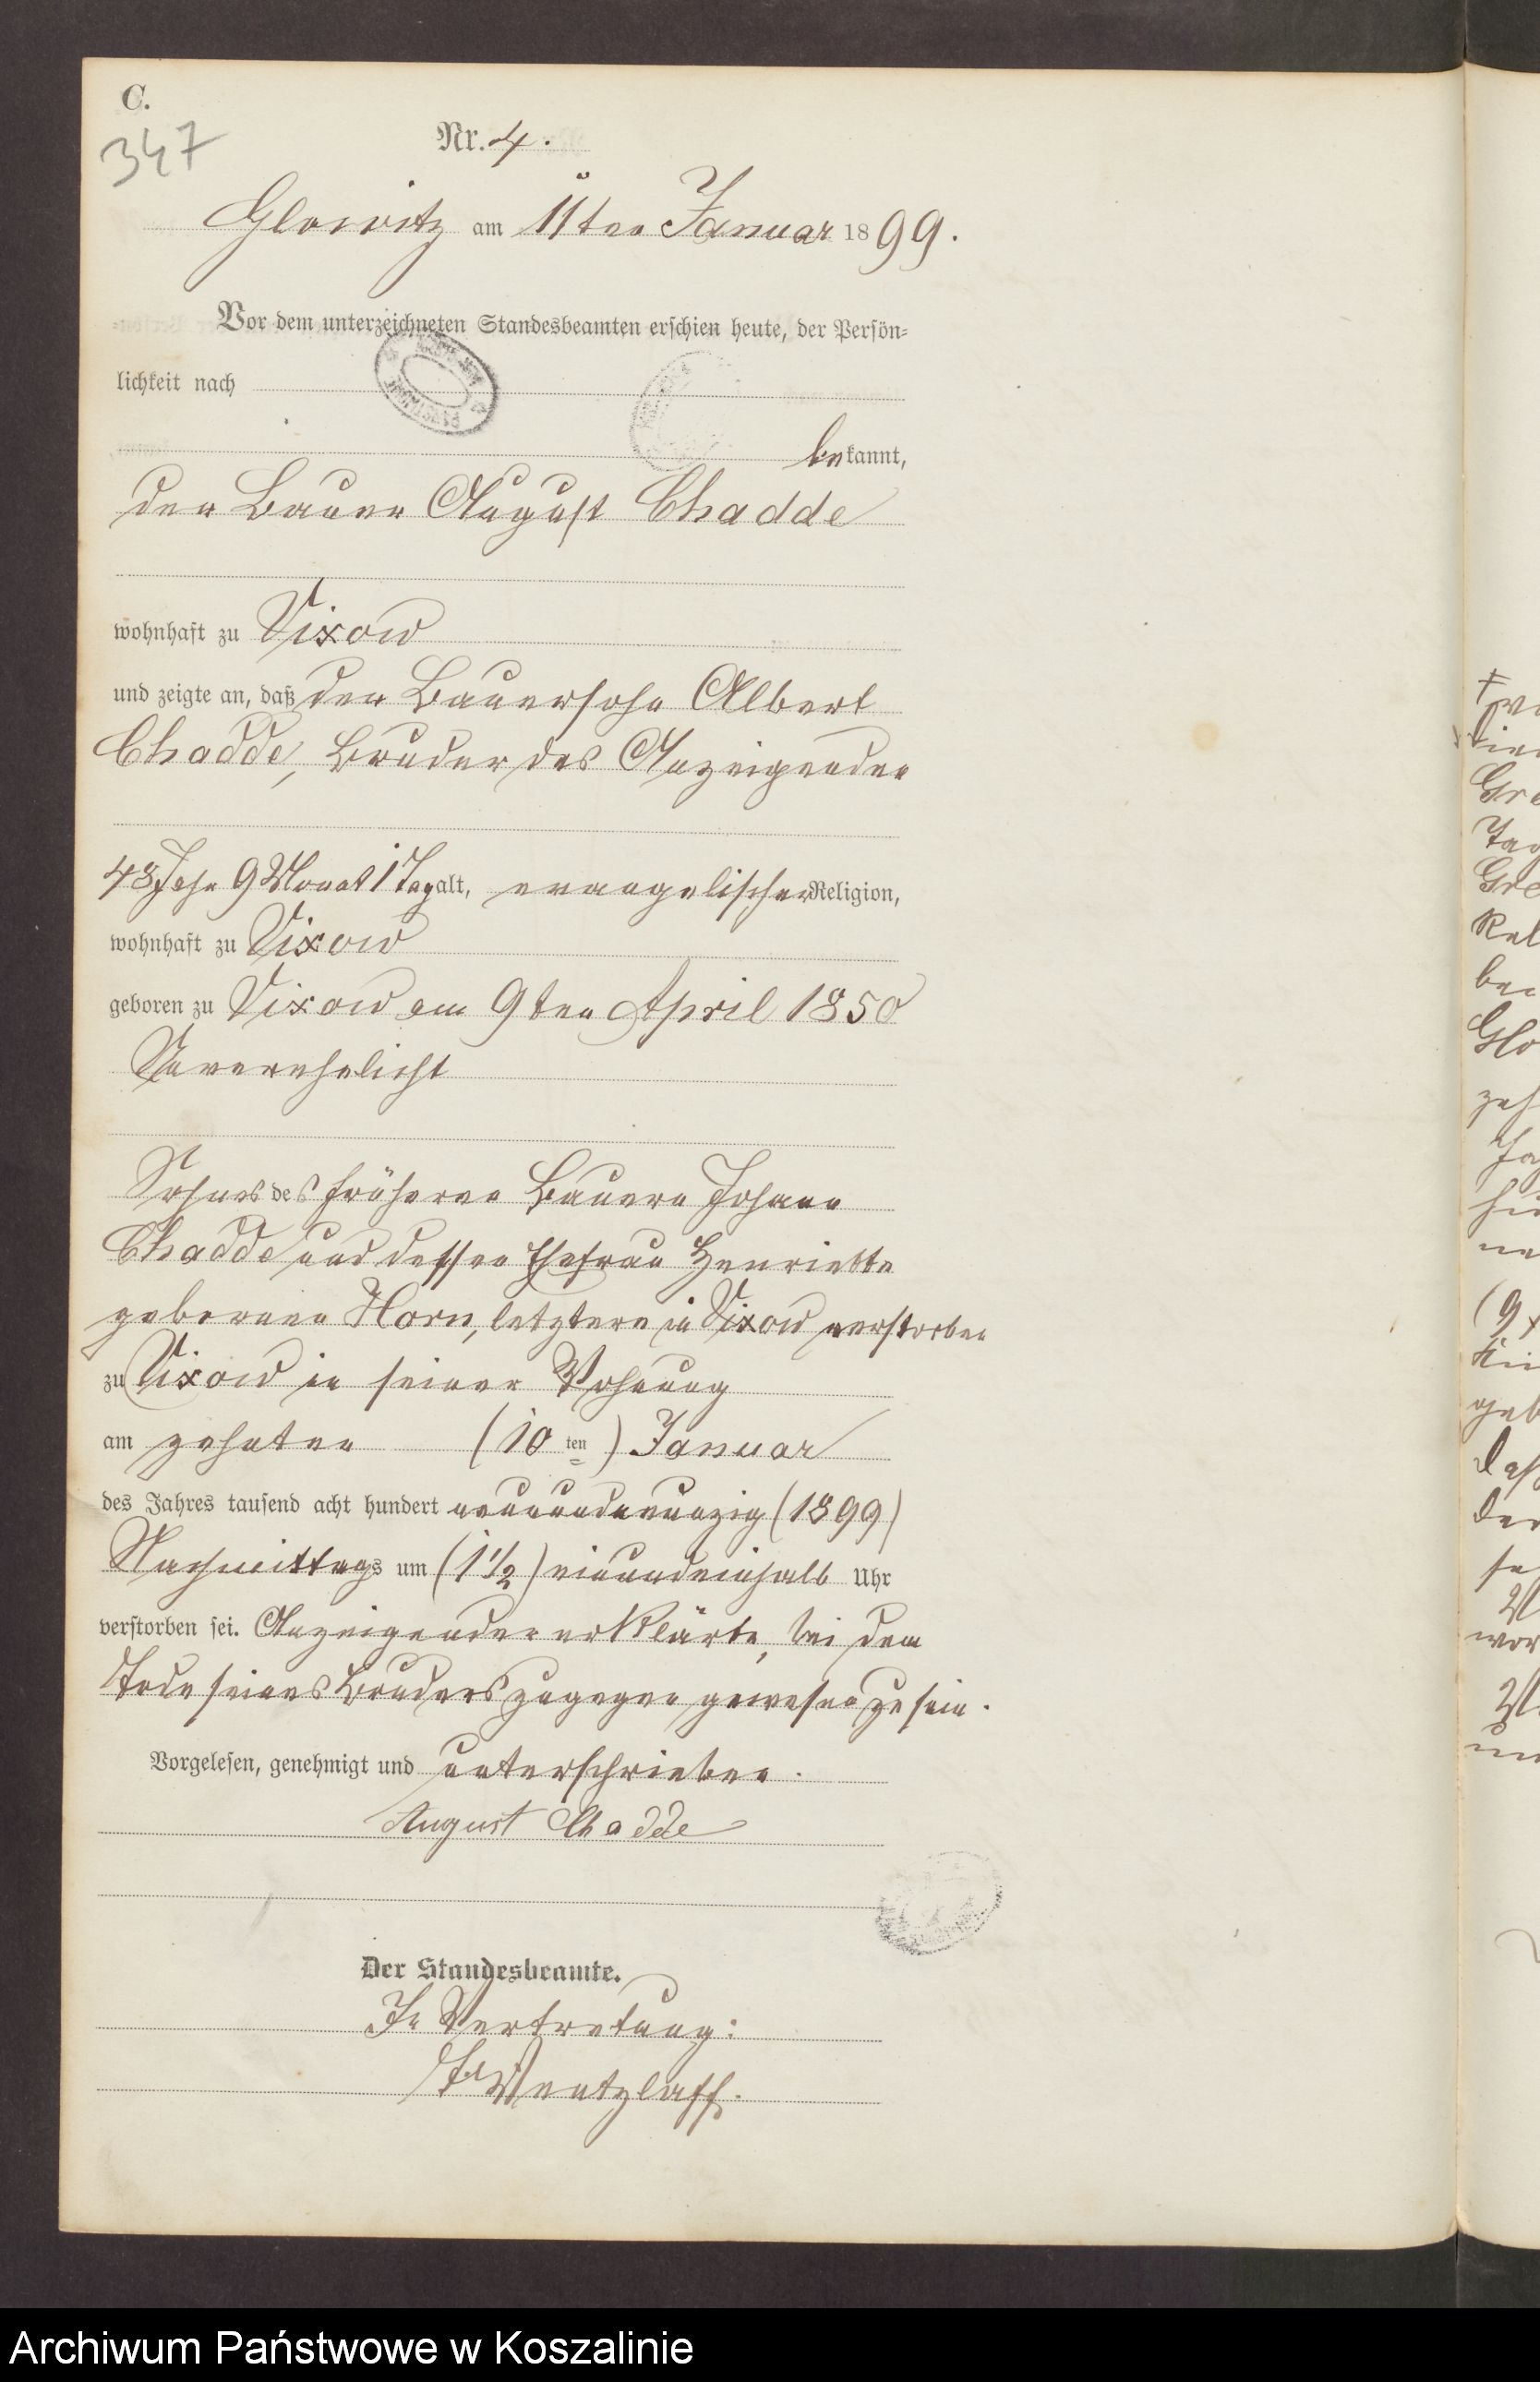 C.
347
Nr. 4.
Glowitz am 11ten Januar 1899.
Vor dem unterzeichneten Standesbeamten erschien heute, der Persön-
lichkeit nach
bekannt,
der Bauer August Chadde
wohnhaft zu Vixow
und zeigte an, daß der Bauersohn Albert
Chadde, Bruder des Anzeigenden
48 Jahr 9 Monat 1 Tag alt, evangelischer Religion,
wohnhaft zu Vixow
geboren zu Vixow am 9ten April 1850
Unverehelicht
Sohn des früheren Bauern Johann
Chadde und dessen Ehefrau Henriette
geborenen Horn, letztere in Vixow verstorben
zu Vixow in seiner Wohnung
am zehnten (10 ten) Januar
des Jahres tausend acht hundert neunundneunzig (1899)
Nachmittags um (1 1/2) einundeinhalb Uhr
verstorben sei. Anzeigender erklärte, bei dem
Tode seines Bruders zugegen gewesen zu sein.
Vorgelesen, genehmigt und unterschrieben.
August Chadde
Der Standesbeamte.
In Vertretung:
Wentzlaff.
Archiwum Państwowe w Koszalinie